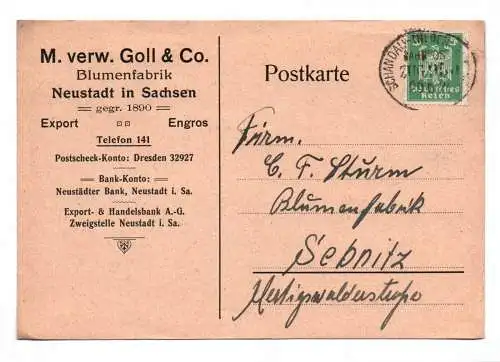 M. verw. Goll & Co.
Blumenfabrik
Neustadt in Sachsen
gegr. 1890
Export Engros
Telefon 141
Postscheck-Konto: Dresden 32927
Bank-Konto:
Neustädter Bank, Neustadt i. Sa.
Export- & Handelsbank A.-G.
Zweigstelle Neustadt i. Sa.
Postkarte
5
Deutsches
Reich
Firm.
C. F. Sturm
Blumenfabrik
Sebnitz
Hertigswalderstraße